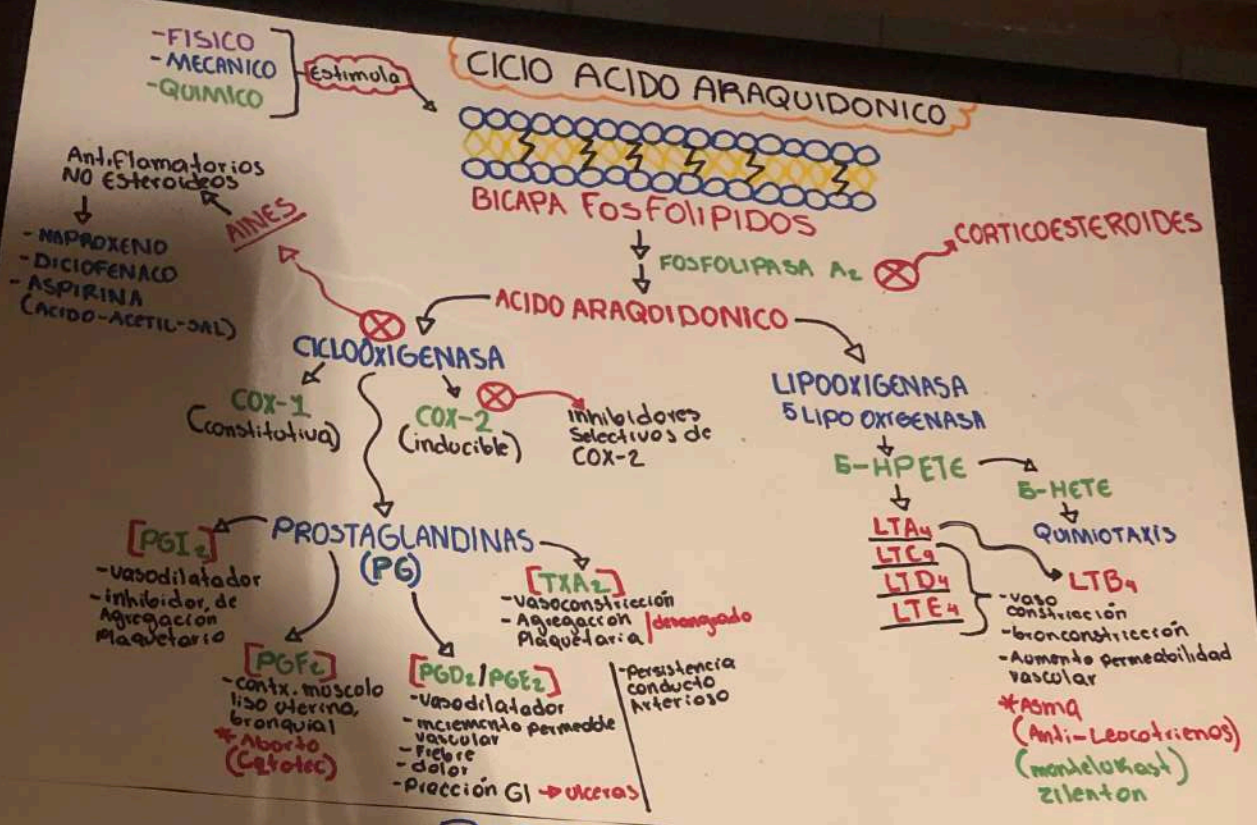 -FISICO
-MECANICO
-QUIMICO
Estimula
CICLO ACIDO ARAQUIDONICO
BICAPA FOSFOLIPIDOS
FOSFOLIPASA A2
CORTICOESTEROIDES
ACIDO ARAQUIDONICO
Antiflamatorios
NO Esteroideos
AINES
-NAPROXENO
-DICLOFENACO
-ASPIRINA
(ACIDO-ACETIL-SAL)
CICLOOXIGENASA
COX-1
(constitutiva)
COX-2
(inducible)
inhibidores
Selectivos de
COX-2
LIPOOXIGENASA
5 LIPO OXIGENASA
5-HPETE
5-HETE
QUIMIOTAXIS
LTA4
LTC4
LTD4
LTE4
LTB4
-vaso
constricción
-bronconstricción
-Aumento permeabilidad
vascular
*Asma
(Anti-Leocotrienos)
(montelukast)
zilenton
PROSTAGLANDINAS
(PG)
[PGI2]
-vasodilatador
-inhibidor, de
Agregación
Plaquetario
[TXA2]
-Vasoconstricción
-Agregación
Plaquetaria
desangrado
[PGF2]
-contx. músculo
liso uterino,
bronquial
*Aborto
(Cytotec)
[PGD2/PGE2]
-Vasodilatador
-incremento permeable
vascular
-Fiebre
-dolor
-Prección GI → ulceras
-Persistencia
conducto
Arterioso